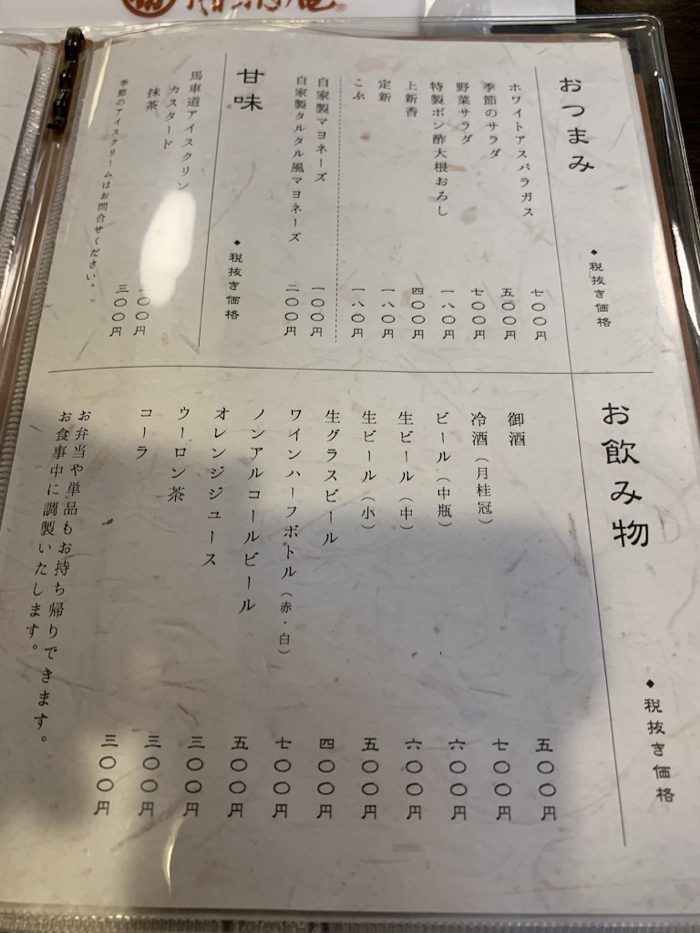 おつまみ
◆税抜き価格
ホワイトアスパラガス 七〇〇円
季節のサラダ 五〇〇円
野菜サラダ 七〇〇円
特製ポン酢大根おろし 一八〇円
上新香 四〇〇円
定新 一八〇円
こぶ 一八〇円
自家製マヨネーズ 一〇〇円
自家製タルタル風マヨネーズ 二〇〇円
甘味
◆税抜き価格
馬車道アイスクリン
カスタード
抹茶 〇〇円
季節のアイスクリームはお問合せください。 三〇〇円
お飲み物
◆税抜き価格
御酒 五〇〇円
冷酒（月桂冠） 七〇〇円
ビール（中瓶） 六〇〇円
生ビール（中） 六〇〇円
生ビール（小） 五〇〇円
生グラスビール 四〇〇円
ワインハーフボトル（赤・白） 七〇〇円
ノンアルコールビール 五〇〇円
オレンジジュース 三〇〇円
ウーロン茶 三〇〇円
コーラ 三〇〇円
お弁当や単品もお持ち帰りできます。
お食事中に調製いたします。